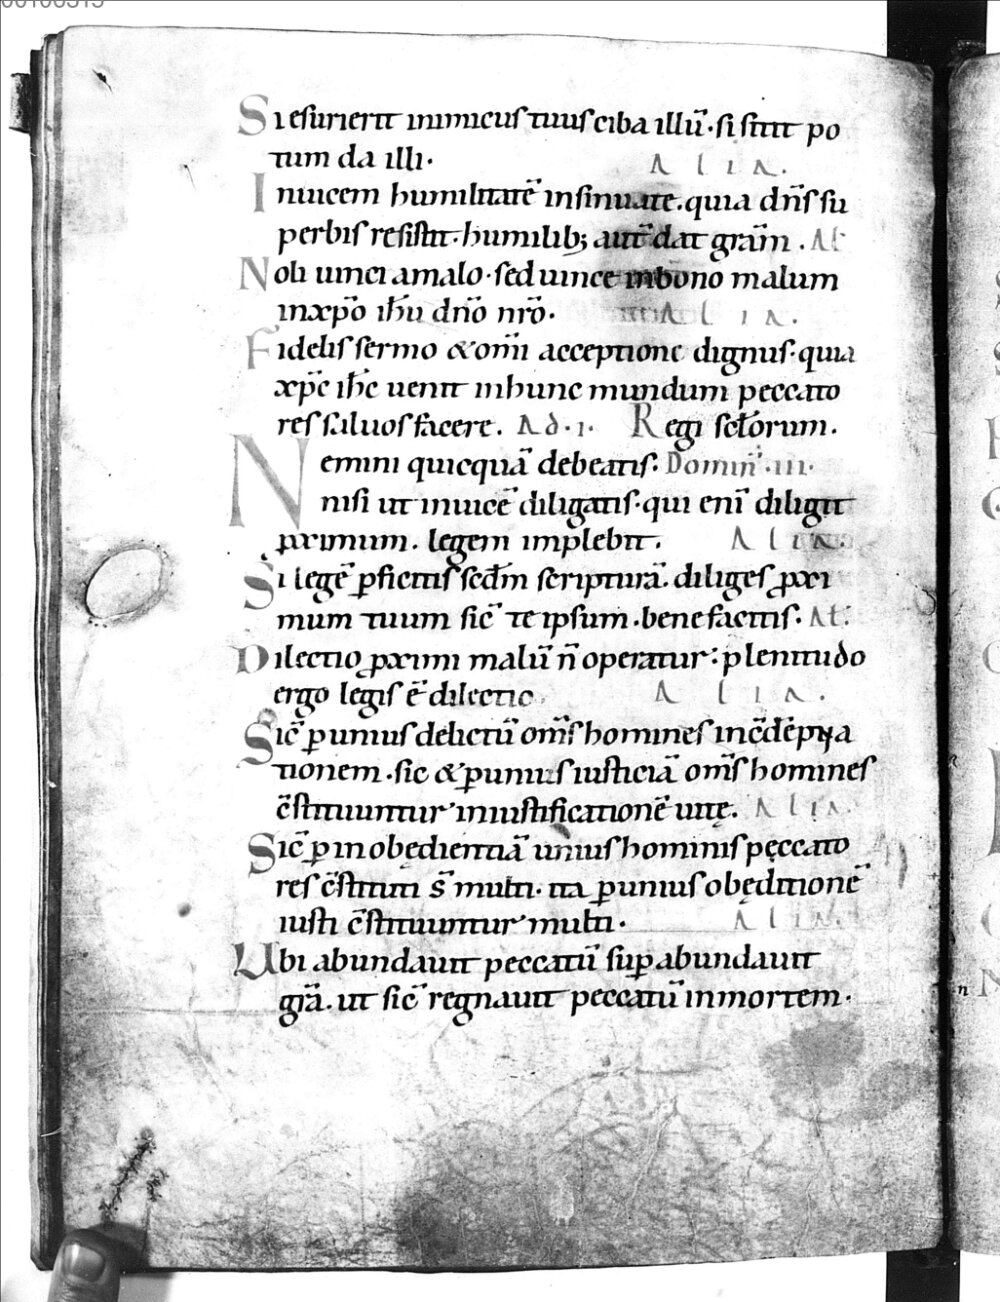 Si esurierit inimicus tuus ciba illū·si sitit po
tum da illi· A l i a.
Inuicem humilitatē insinuate.quia dn̄s su
perbis resistit·humilib; aut̄ dat grām. Al
Noli uinci amalo·sed uince inbono malum
inxp̄o ih̄u dn̄o nr̄o. A l i a.
Fidelis sermo &om̄i acceptione dignus·quia
xp̄c ih̄c uenit inhunc mundum peccato
res saluos facere. Ad·i· Regi sc̄torum.
Nemini quicquā debeatis: Domin̄·iii·
nisi ut inuicē diligatis·qui enī diligit
ꝓximum. legem impleuit. A l i a.
Si legē ꝑficitis sedm̄ scripturā. diliges ꝓxi
mum tuum sic̄ te ipsum.benefacitis. Al.
Dilectio ꝓximi malū n̄ operatur: plenitudo
ergo legis ē dilectio. A l i a.
Sic̄ ꝑ unius delictū om̄s homines in
tionem.sic &ꝑunius iusticiā om̄s homines
c̄stituuntur iniustificationē uitę. A l i a.
Sic̄ ꝑ inobędientiā unius hominis pęccato
res c̄stituti s̄ multi· ita ꝑunius obęditionē
iusti c̄stituuntur multi. A l i a.
Ubi abundauit peccatū suꝑabundauit
grā. ut sic̄ regnauit peccatū inmortem.